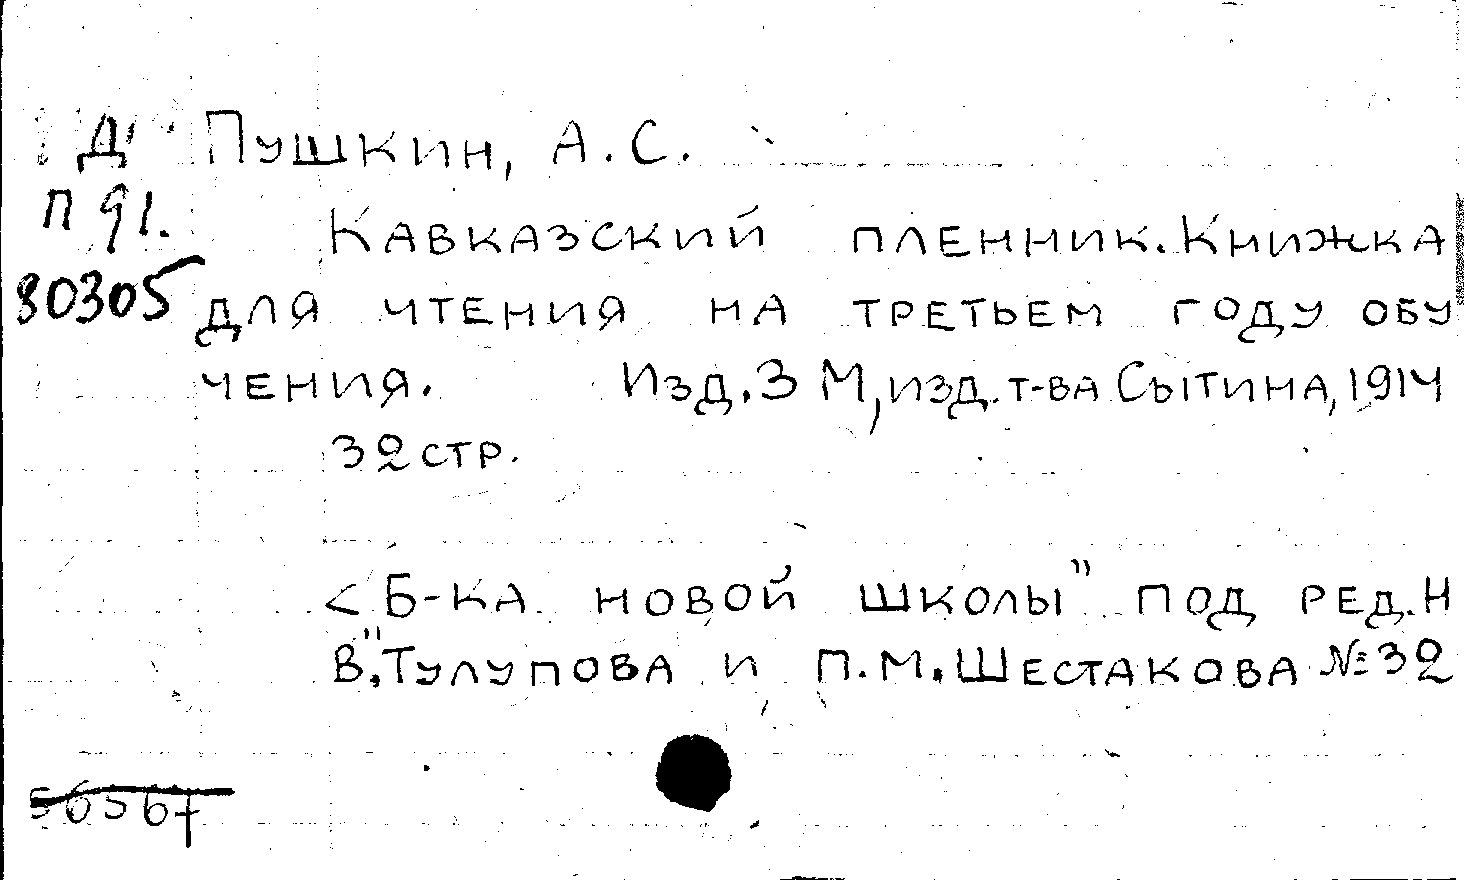 Д Пушкин, А.С.
П 91. Кавказский пленник. Книжка
80305 для чтения на третьем году обу
чения. Изд.3 М, изд. т-ва Сытина, 1914
32 стр.
<Б-ка новой школы" под ред. Н
В." Тулупова и П.М. Шестакова № 32
56567